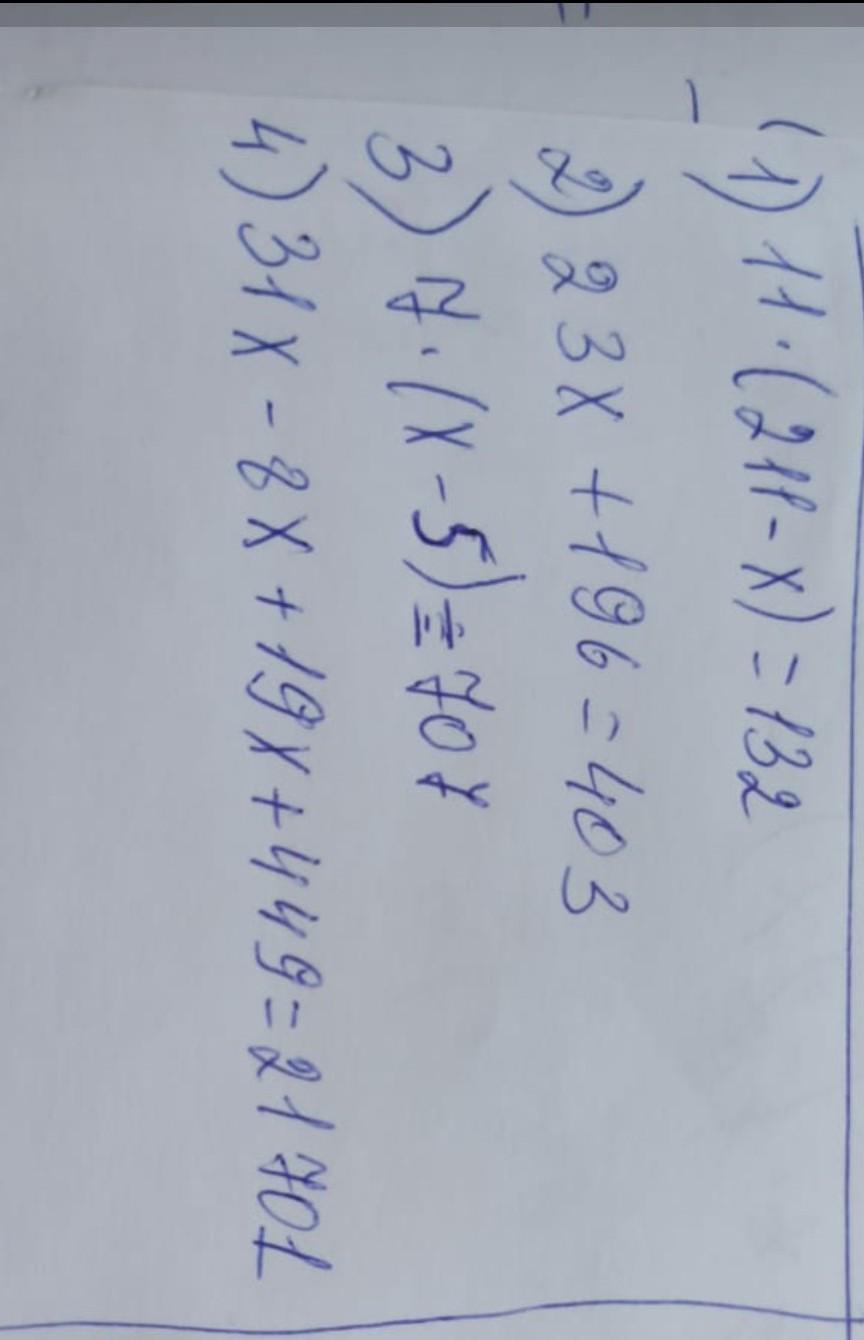 1) 11·(211-x)=132
2) 23x+196=403
3) 7·(x-5)=707
4) 31x-8x+19x+449=21701